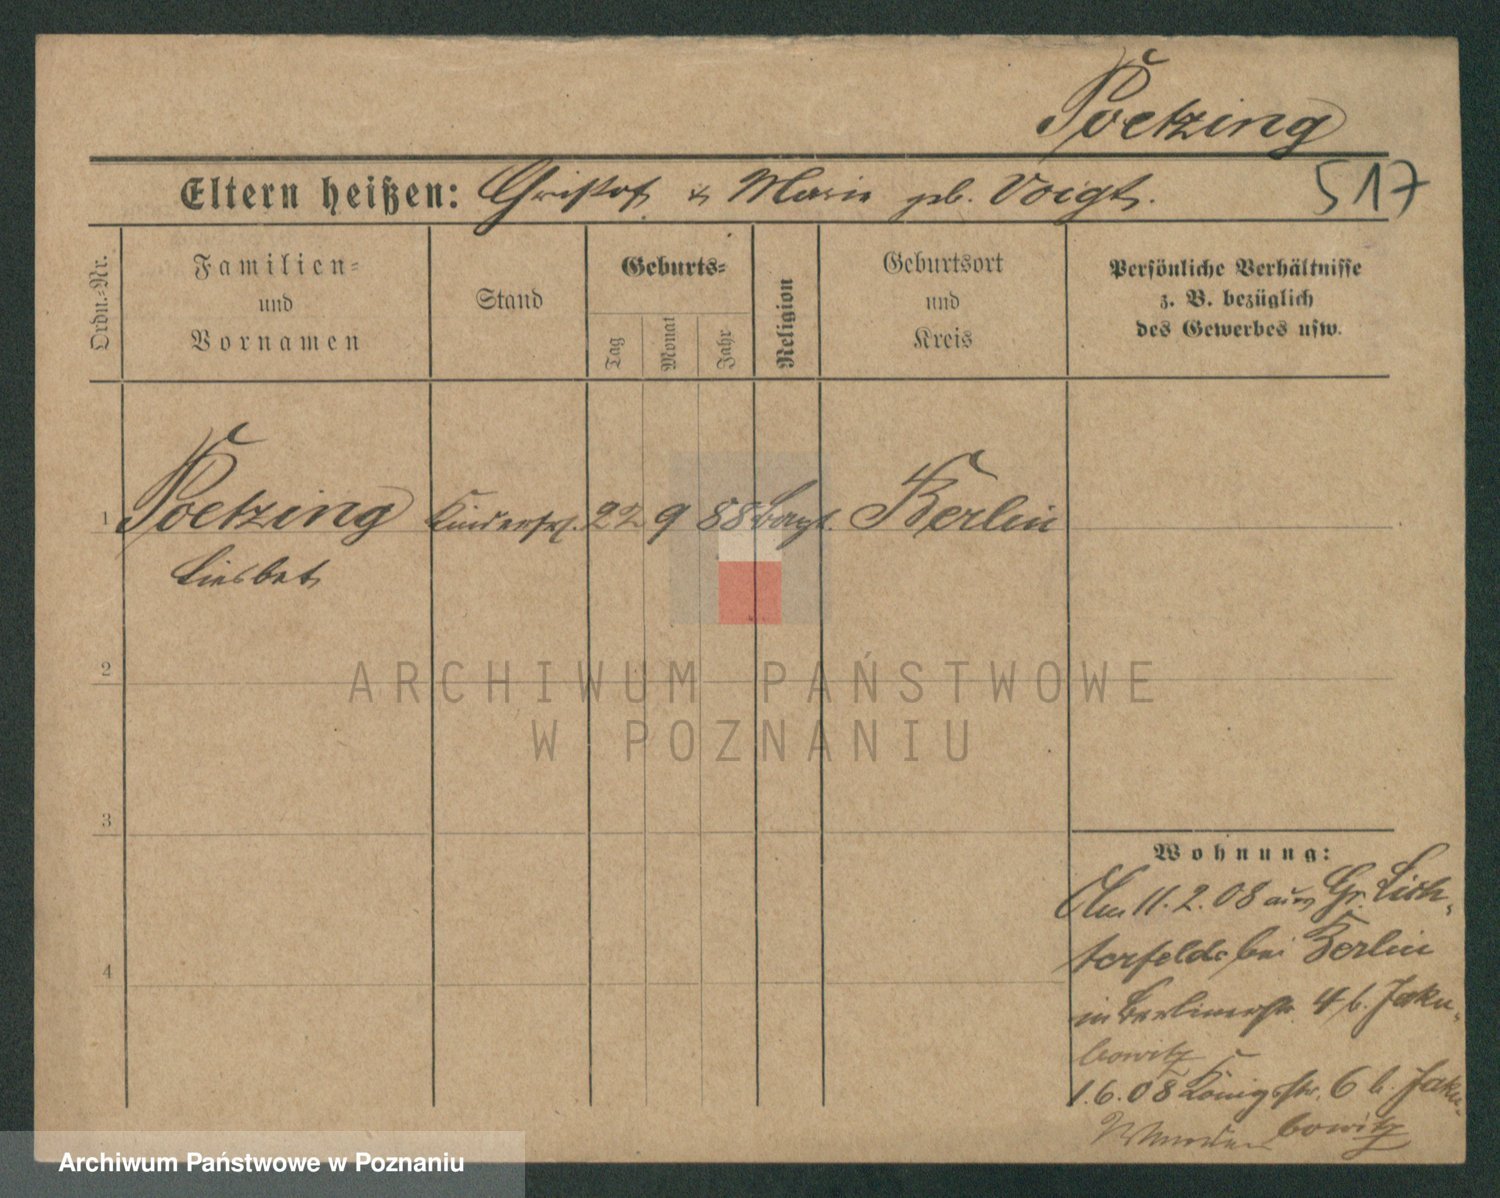 Poetzing
Eltern heißen: Christof u Marie geb. Voigt.
517
Ordn.-Nr.
Familien-
und
Vornamen
Stand
Geburts-
Tag
Monat
Jahr
Religion
Geburtsort
und
Kreis
Persönliche Verhältnisse
z. B. bezüglich
des Gewerbes usw.
1 Poetzing Kinderfrl. 22 9 88 evgl. Berlin
Liesbet
2
3
4
Wohnung:
Am 11. 2. 08 aus Gr. Lich-
terfelde bei Berlin
in Berlinerstr. 4 b. Jaku-
bowitz
1. 6. 08 Königstr. 6 b. Jaku-
bowitz
ARCHIWUM PAŃSTWOWE
W POZNANIU
Archiwum Państwowe w Poznaniu